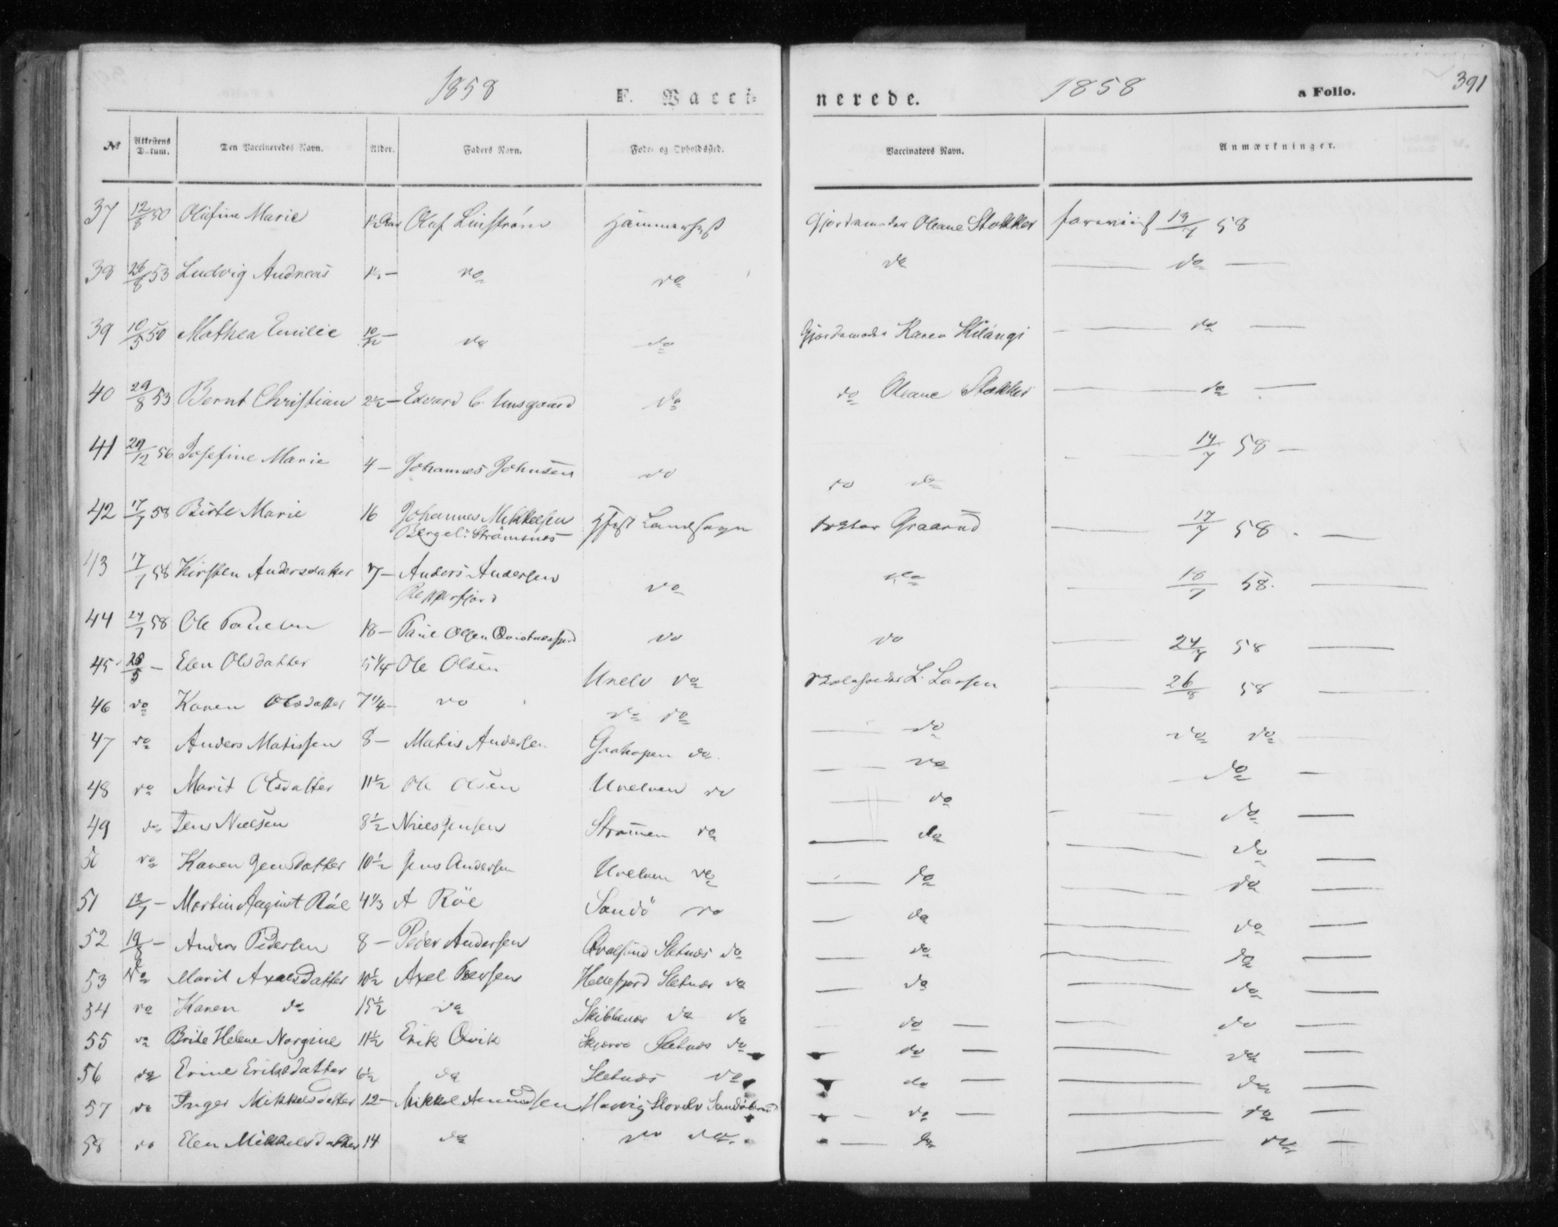 1858 F. Vacci- nerede. 1858 a Folio. 391
№ Attestens Datum. Den Vaccineredes Navn. Alder. Faders Navn. Føde- og Opholdssted. Vaccinators Navn. Anmærkninger.
37 12/8 50 Olufine Marie 1½ Aar Oluf Linstrøm Hammerfest Gjordemoder Oleane Stokker foreviist 19/7 58
38 26/8 53 Ludvig Andreas 1½ — do do do — do —
39 10/5 50 Mathea Emilie 10/12 — do do Gjordemoder Karen — do —
40 29/8 53 Bernt Christian 2½ — Edvard C. do do Oleane Stokker — do —
41 20/12 56 Josefine Marie 4 — Johannes Johnsen do do do — 14/7 58 —
42 17/7 58 Birte Marie 16 Johannes Mikkelsen Hfest Landsogn Graarud — 17/7 58 . —
Strømsnes
43 17/7 58 Kirsten Andersdatter 7 — Anders Andersen do do — 18/7 58. —
Repperfjord
44 24/7 58 Ole Paulsen 18 — Paul Olsen do do 24/8 58 —
45 28/5 — Elen Olsdatter 5 1/4 Ole Olsen do L. Larsen — 26/8 58 —
46 do Karen Olsdatter 7 1/4 — do do do — do do do
47 do Anders Matissen 8 — Matis Andersen do — do — do —
48 do Marit Olsdatter 11½ Ole Olsen do — do — do —
49 do Jens Nielsen 8½ Niels Jensen Strømmen do — do — do —
50 do Karen Jensdatter 10½ Jens Andersen do — do — do —
51 13/7 — Martin August Røe 4 1/3 A Røe Sandø do — do — do —
52 19/8 — Anders Pedersen 8 — Peder Andersen Qvalsund Sletnæs do — do — do —
53 do Marit Axelsdatter 10½ Axel Sletnæs do — do — do —
54 do Karen do 15½ do do do — do — do —
55 do Brite Helene Norgine 11½ Erik Qvik Sletnæs do — do — do —
56 do Erine Eriksdatter 6½ do Sletnæs do — do — do —
57 do Inger Mikkelsdatter 12 — Mikkel Amundsen — do — do —
58 do Elen Mikkelsdatter 14 do do do — do — do —